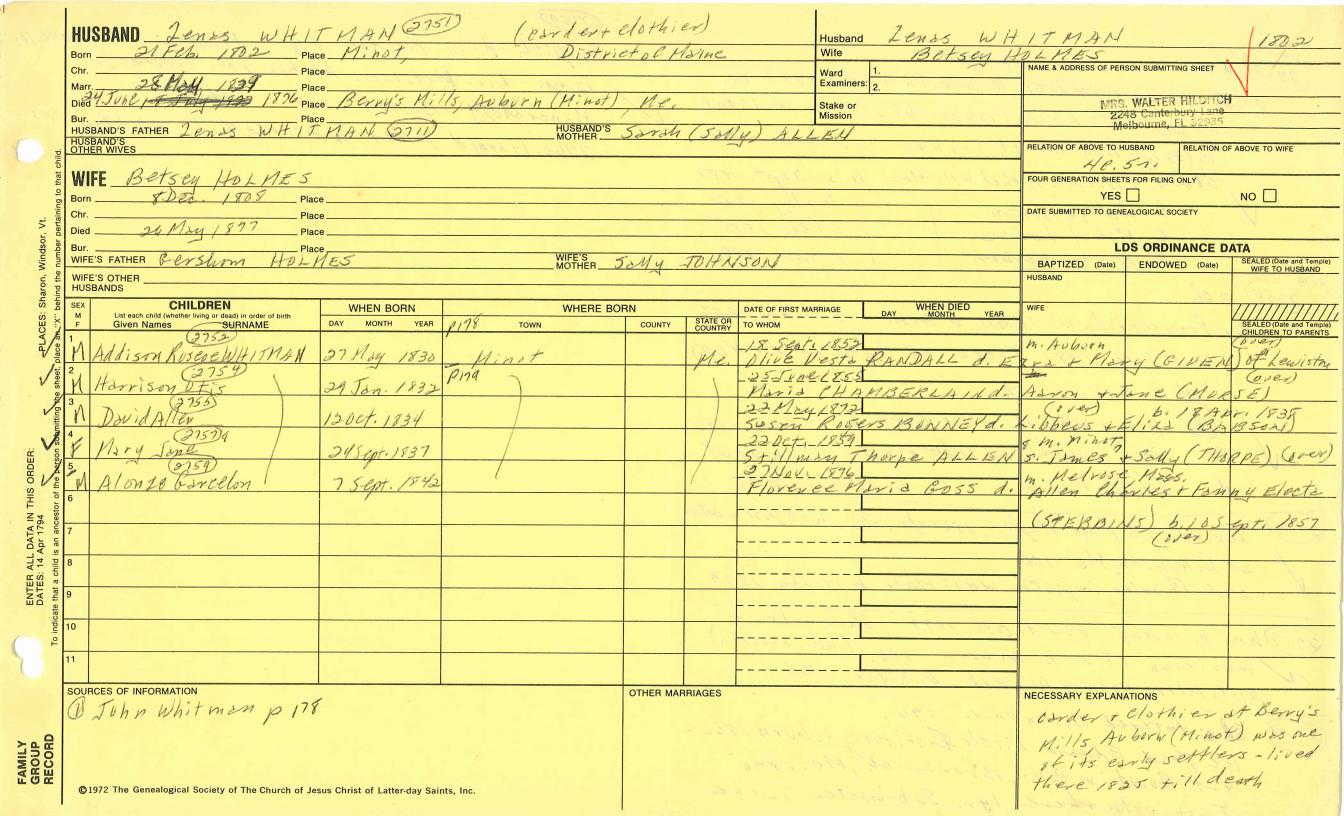 HUSBAND Zenas WHITMAN (2751) (carder + clothier)
Born 21 Feb. 1802 Place Minot, District of Maine
Chr. Place
Marr. 28 May, 1829 Place
Died 24 June, 1876 Place Berry's Mills, Auburn (Minot), Me.
Bur. Place
HUSBAND'S FATHER Zenas WHITMAN (2711) HUSBAND'S MOTHER Sarah (Sally) ALLEN
HUSBAND'S OTHER WIVES
Husband Zenas WHITMAN 1802
Wife Betsey HOLMES
Ward Examiners: 1.
2.
Stake or Mission
NAME & ADDRESS OF PERSON SUBMITTING SHEET
MRS. WALTER HILDITCH
2248 Canterbury Lane
Melbourne, FL 32935
RELATION OF ABOVE TO HUSBAND RELATION OF ABOVE TO WIFE
FOUR GENERATION SHEETS FOR FILING ONLY
YES NO
DATE SUBMITTED TO GENEALOGICAL SOCIETY
WIFE Betsey HOLMES
Born 8 Dec. 1808 Place
Chr. Place
Died 26 May 1877 Place
Bur. Place
WIFE'S FATHER Gershom HOLMES WIFE'S MOTHER Sally JOHNSON
WIFE'S OTHER HUSBANDS
LDS ORDINANCE DATA
BAPTIZED (Date) ENDOWED (Date) SEALED (Date and Temple) WIFE TO HUSBAND
HUSBAND
WIFE
SEALED (Date and Temple) CHILDREN TO PARENTS
SEX M F
CHILDREN
List each child (whether living or dead) in order of birth
Given Names SURNAME
WHEN BORN
DAY MONTH YEAR
WHERE BORN
p178 TOWN COUNTY STATE OR COUNTRY
DATE OF FIRST MARRIAGE
TO WHOM
WHEN DIED
DAY MONTH YEAR
1 (2752) 18 Sept. 1852 m. Auburn (over)
M Addison Roscoe WHITMAN 27 May 1830 Minot Me. Olive Vesta RANDALL d. Ezra + Mary (GIVEN) of Lewiston
2 (2754) p179 25 June 1855 (over)
M Harrison Otis 29 Jan. 1832 Maria CHAMBERLAIN d. Aaron + Jane (MORSE)
3 (2755) 22 May 1872 (over) b. 18 Apr. 1838
M David Allen 12 Oct. 1834 Susan Rogers BONNEY d. Libbeus + Eliza (BABSON)
4 22 Oct. 1859 m. Minot
F Mary Jane 24 Sept. 1837 Stillman Thorpe ALLEN s. James + Sally (THORPE) (over)
5 (2759) 27 Nov. 1876 m. Melrose, Mass.
M Alonzo Garcelon 7 Sept. 1842 Florence Maria GOSS d. Allen Charles + Fanny Electa
6
7 (STEBBINS) b. 10 Sept. 1857
(over)
8
9
10
11
SOURCES OF INFORMATION
(1) John Whitman p 178
OTHER MARRIAGES
NECESSARY EXPLANATIONS
carder + clothier at Berry's
Mills, Auburn (Minot) was one
of its early settlers - lived
there 1825 till death
©1972 The Genealogical Society of The Church of Jesus Christ of Latter-day Saints, Inc.
FAMILY GROUP RECORD
ENTER ALL DATA IN THIS ORDER:
DATES: 14 Apr 1794
PLACES: Sharon, Windsor, Vt.
To indicate that a child is an ancestor of the person submitting the sheet, place an "X" behind the number pertaining to that child.